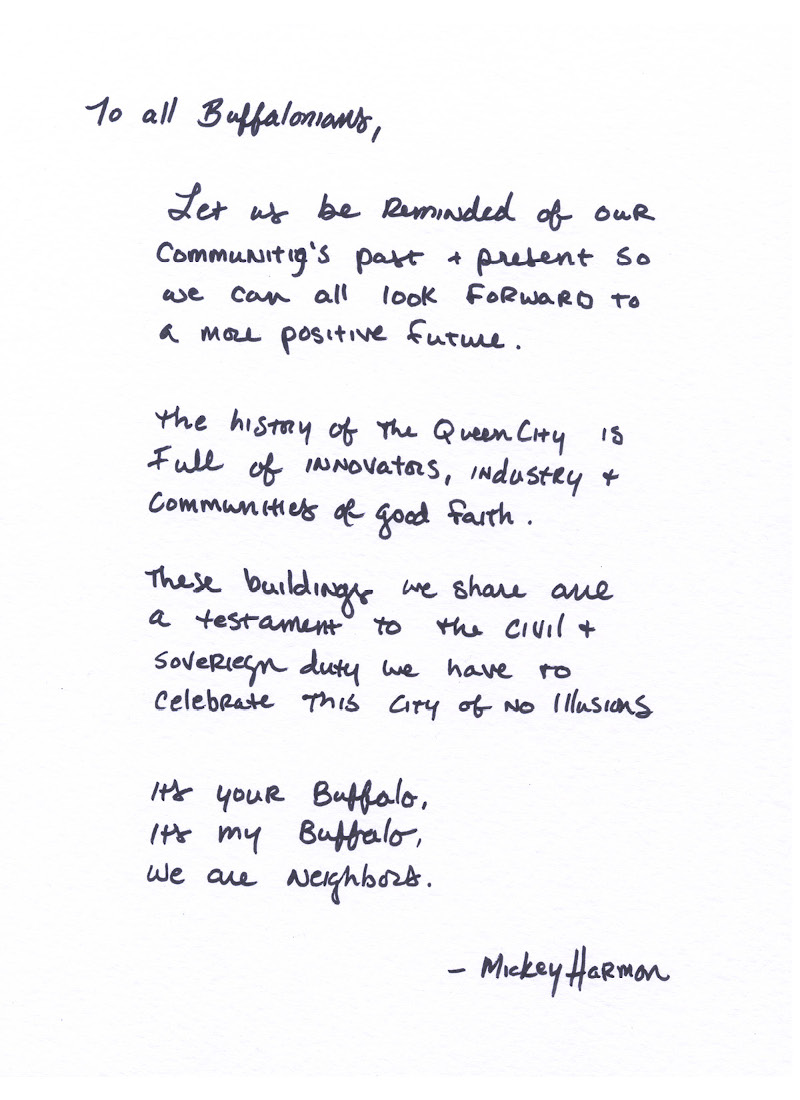 To all Buffalonians,
Let us be Reminded of our
Community's past + present so
we can all look FORWARD to
a more positive future.
the history of the Queen City is
Full of innovators, industry +
Communities of good faith.
These buildings we share are
a testament to the civil +
soveriegn duty we have to
celebrate this city of no Illusions
It's your Buffalo,
It's my Buffalo,
We are neighbors.
- Mickey Harmon